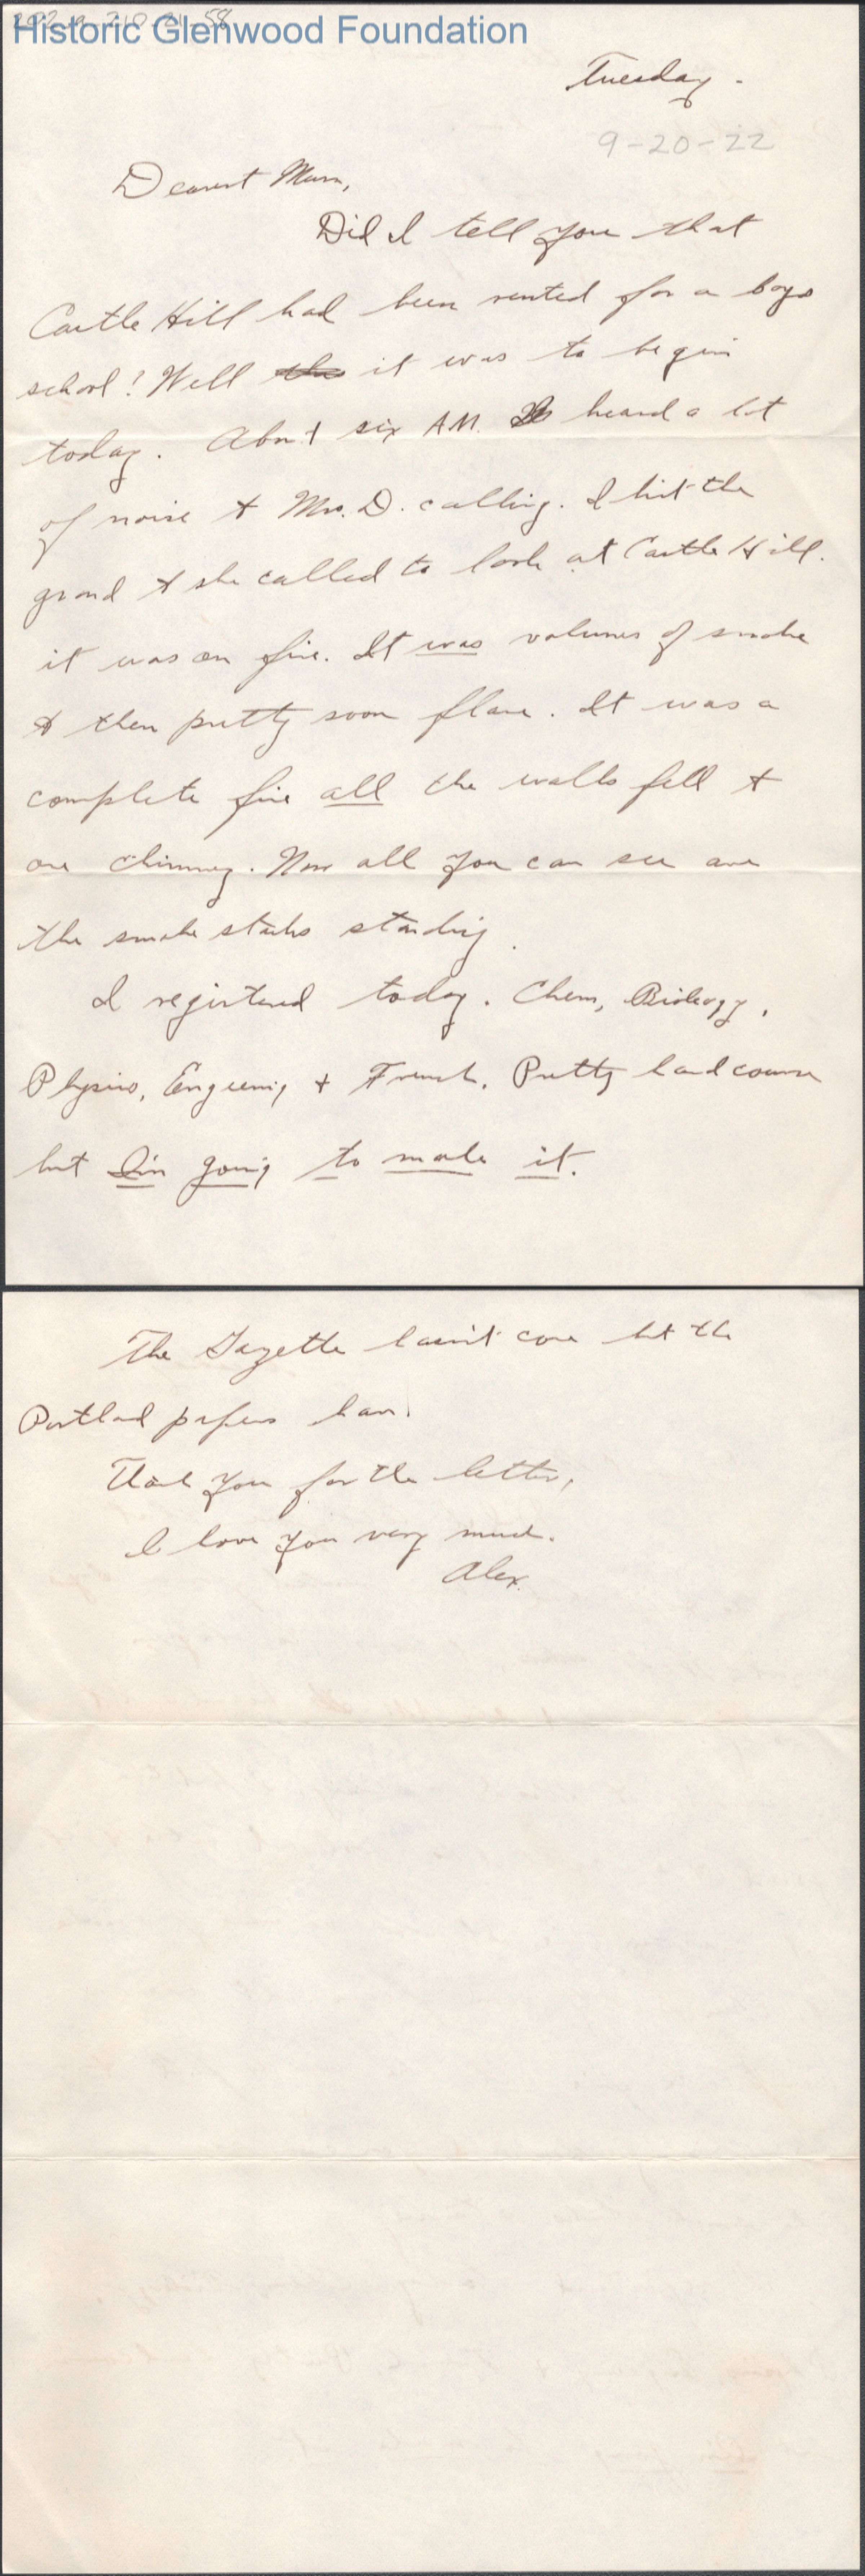 Historic Glenwood Foundation
Tuesday.
9-20-22
Dearest Mum,
Did I tell you that
Castle Hill had been rented for a boys
school! Well it was to begin
today. About six A.M. I heard a lot
of noise + Mrs. D. calling. I hit the
ground + she called to look at Castle Hill.
it was on fire. It was volumes of smoke
+ then pretty soon flame. It was a
complete fire all the walls fell +
one chimney. Now all you can see are
the smoke stacks standing.
I registered today. Chem, Biology,
Physics, Engineering + French. Pretty hard course
but I'm going to make it.
The Gazette hasn't come but the
Portland papers have.
Thank you for the letter,
I love you very much.
Alex.